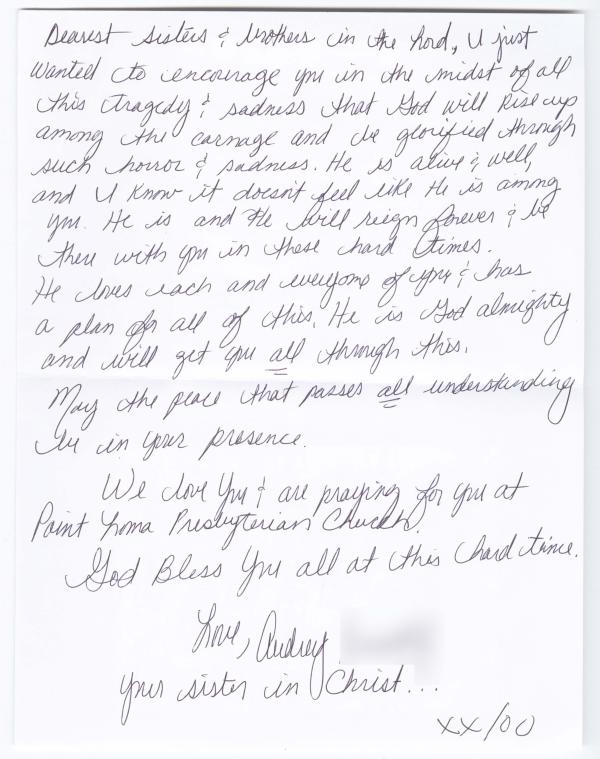 Dearest Sisters & brothers in the Lord, I just
wanted to encourage you in the midst of all
this tragedy & sadness that God will Rise up
among the carnage and be glorified through
such horror & sadness. He is alive & well,
and I know it doesn't feel like He is among
you. He is and He will reign forever & be
there with you in these hard times.
He loves each and everyone of you & has
a plan for all of this. He is God almighty
and will get you all through this.
May the peace that passes all understanding
be in your presence.
We love you & are praying for you at
Point Loma Presbyterian Church.
God Bless you all at this hard time.
Love, Audrey
your sister in Christ...
xx/oo